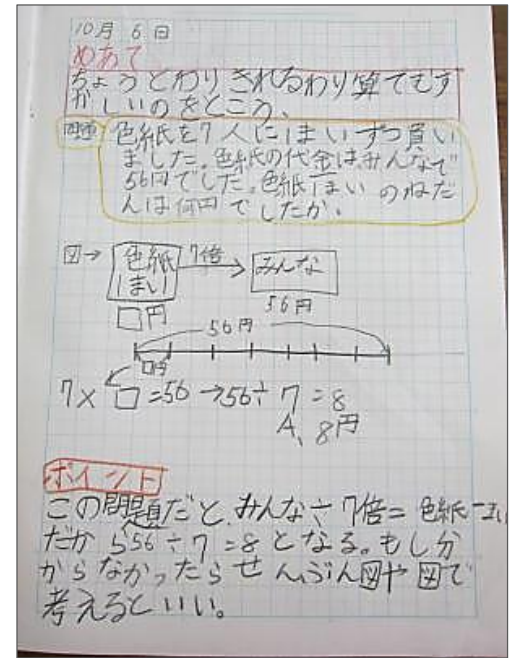 10月6日
めあて
ちょうどわりきれるわり算でむず
かしいのをとこう。
問題 色紙を7人に1まいずつ買い
ました。色紙の代金はみんなで
56円でした。色紙1まいのねだ
んは何円でしたか。
図→ 色紙 7倍 みんな
1まい
□円 56円
56円
□円
7×□=56→56÷7=8
A、8円
ポイント
この問題だと、みんな÷7倍=色紙一まい
だから56÷7=8となる。もしわ
からなかったらせんぶん図や図で
考えるといい。